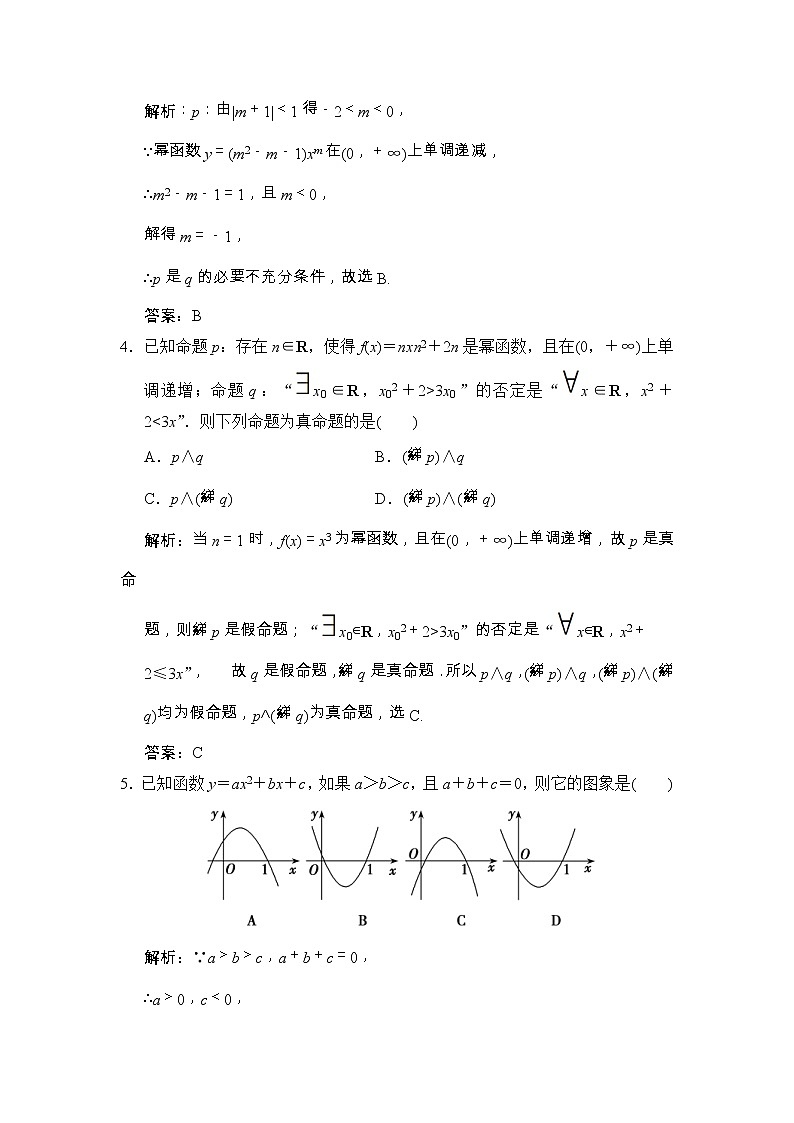 解析：p：由|m＋1|＜1得－2＜m＜0，
∵幂函数y＝(m2－m－1)xᵐ在(0，＋∞)上单调递减，
∴m2－m－1＝1，且m＜0，
解得m＝－1，
∴p是q的必要不充分条件，故选B.
答案：B
4．已知命题p：存在n∈R，使得f(x)＝nxn²＋2n是幂函数，且在(0，＋∞)上单
调递增；命题q：“∃x₀∈R，x₀²＋2>3x₀”的否定是“∀x∈R，x²＋
2<3x”．则下列命题为真命题的是(　　)
A．p∧q　B．(綈p)∧q
C．p∧(綈q)　D．(綈p)∧(綈q)
解析：当n＝1时，f(x)＝x³为幂函数，且在(0，＋∞)上单调递增，故p是真
命
题，则綈p是假命题；“∃x₀∈R，x₀²＋2>3x₀”的否定是“∀x∈R，x²＋
2≤3x”，　故q是假命题，綈q是真命题．所以p∧q，(綈p)∧q，(綈p)∧(綈
q)均为假命题，p∧(綈q)为真命题，选C.
答案：C
5．已知函数y＝ax²＋bx＋c，如果a＞b＞c，且a＋b＋c＝0，则它的图象是(　　)
y O 1 x A
y O 1 x B
y O 1 x C
y O 1 x D
解析：∵a＞b＞c，a＋b＋c＝0，
∴a＞0，c＜0，